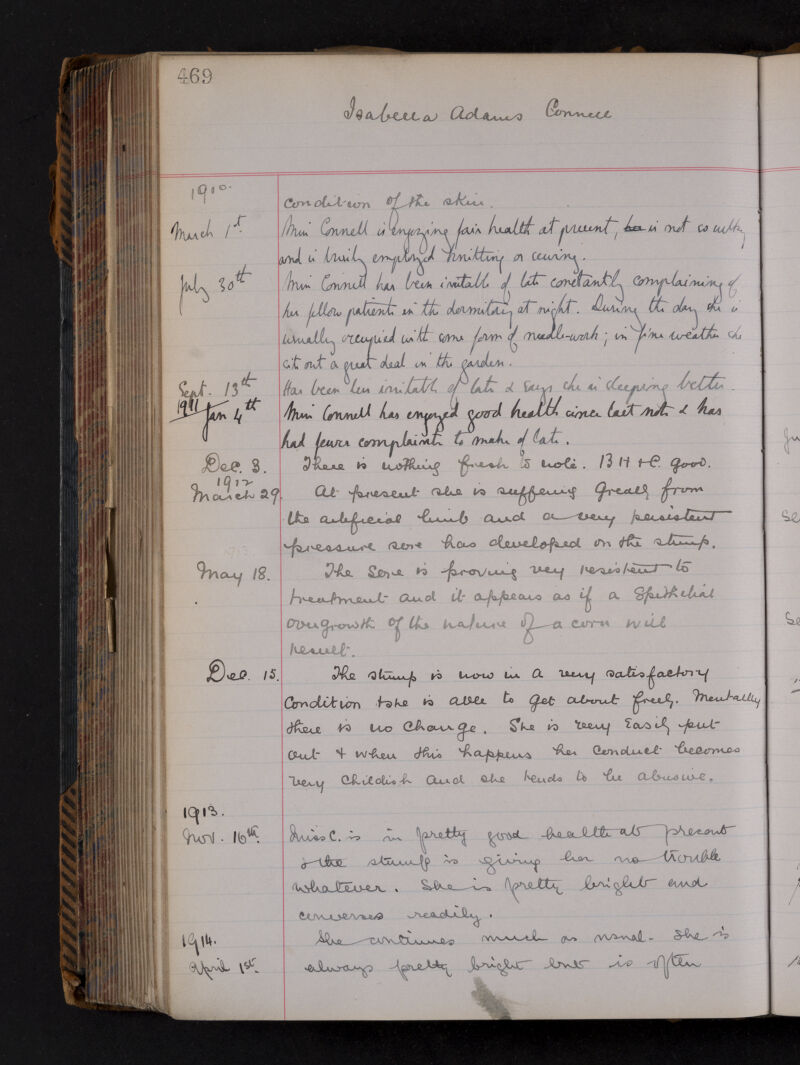 469
Isabella Adams Connell
1910.
condition of the skin.
March 1st. Miss Connell is enjoying fair health at present, is not so sulky
and is busily employed knitting or sewing.
July 30th Miss Connell has been irritable of late constantly complaining of
her fellow patients in the dormitory at night. During the day she is
usually occupied with some form of needle-work; in fine weather she
sits out a great deal in the garden.
Sept. 13th Has been less irritable of late & says she is sleeping better.
1911
Jan 4th Miss Connell has enjoyed good health since last note & has
had fewer complaints to make of late.
Dec. 3. There is nothing fresh to note. B H & C. good.
1912
March 29. At present she is suffering greatly from
the artificial limb and a very persistent
pressure sore has developed on the stump.
May 18. The Sore is proving very resistent to
treatment and it appears as if a Epithelial
overgrowth of the nature of a corn will
result.
Dec. 15. The stump is now in a very satisfactory
Condition & she is able to get about freely. Mentally
there is no change. She is very easily put
out & when this happens her conduct becomes
very childish and she tends to be abusive.
1913.
Nov. 16th. Miss C. is in pretty good health at present
& the stump is giving her no trouble
whatever. She is pretty bright and
converses readily.
1914. She continues much as usual. She is
April 1st. always pretty bright but is often